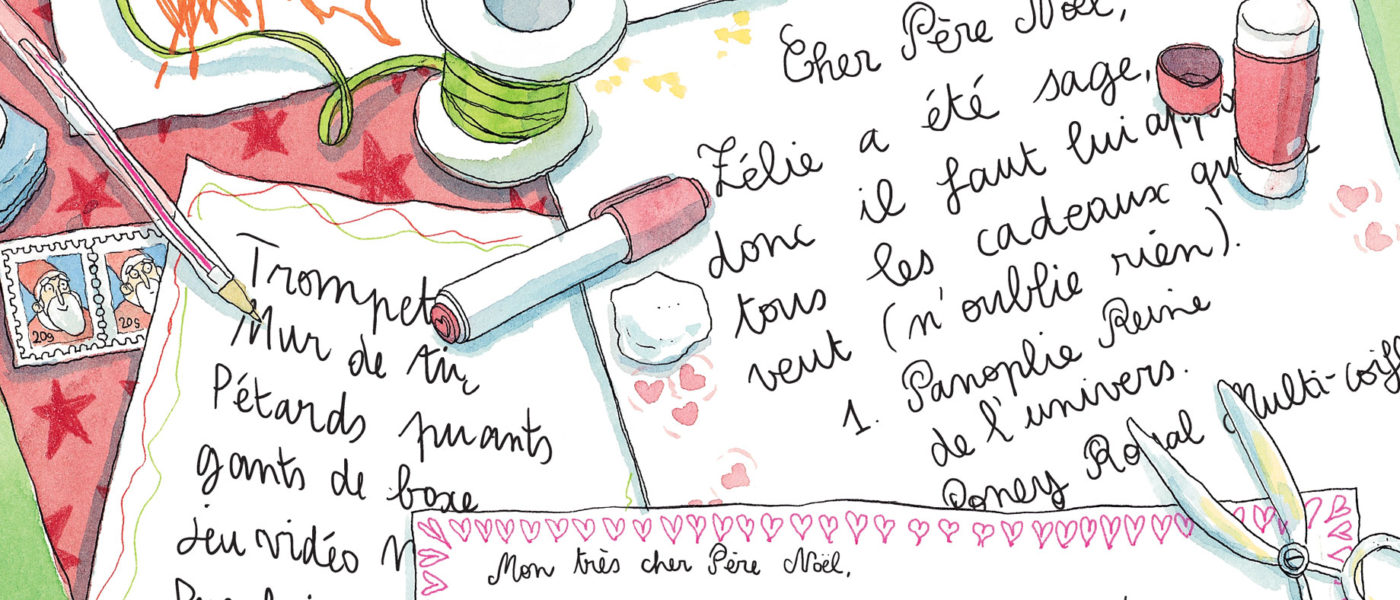 Cher Père Noël,
Zélie a été sage,
donc il faut lui
tous les cadeaux
veut (n'oublie rien).
1. Panoplie Reine
de l'univers.
Poney Royal Multi-coiff
20g 20g
Trompet
Mur de tir
Pétards puants
gants de boxe
jeu vidéo
Mon très cher Père Noël,